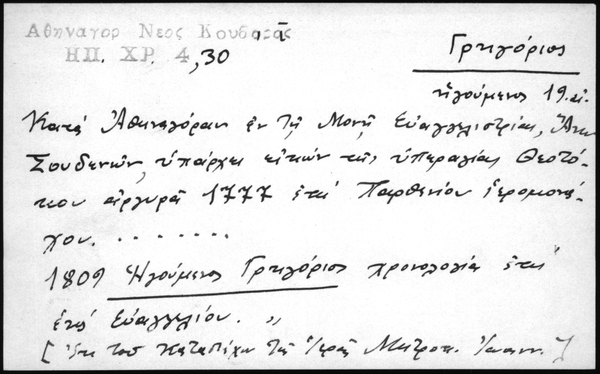 Αθηναγορ Νεος Κουβαρᾶς
ΗΠ. ΧΡ. 4,30
Γρηγόριος
ἡγούμενος 19. αἰ.
Κατά Ἀθηναγόραν ἐν τῇ Μονῇ Εὐαγγελιστρίας, Ἄνω
Σουδενῶν, ὑπάρχει εἰκών τῆς ὑπεραγίας Θεοτό-
κου ἀργυρᾶ 1777 ἐπί Παρθενίου ἱερομονά-
χου. . . . . . . .
1809 Ἡγούμενος Γρηγόριος χρονολογία ἐπί
ἑνός Εὐαγγελίου. „
[Ἐκ τοῦ Καταστίχου τῆς Ἱερᾶς Μητροπ. Ἰωανν.]